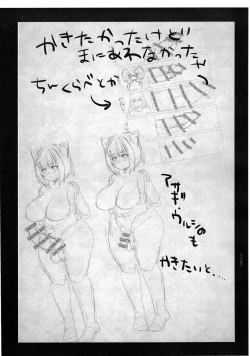 かきたかったけど
まにあわなかったヤツ
ちんくらべとか
アサギ
ウルシのも
かきたいと....